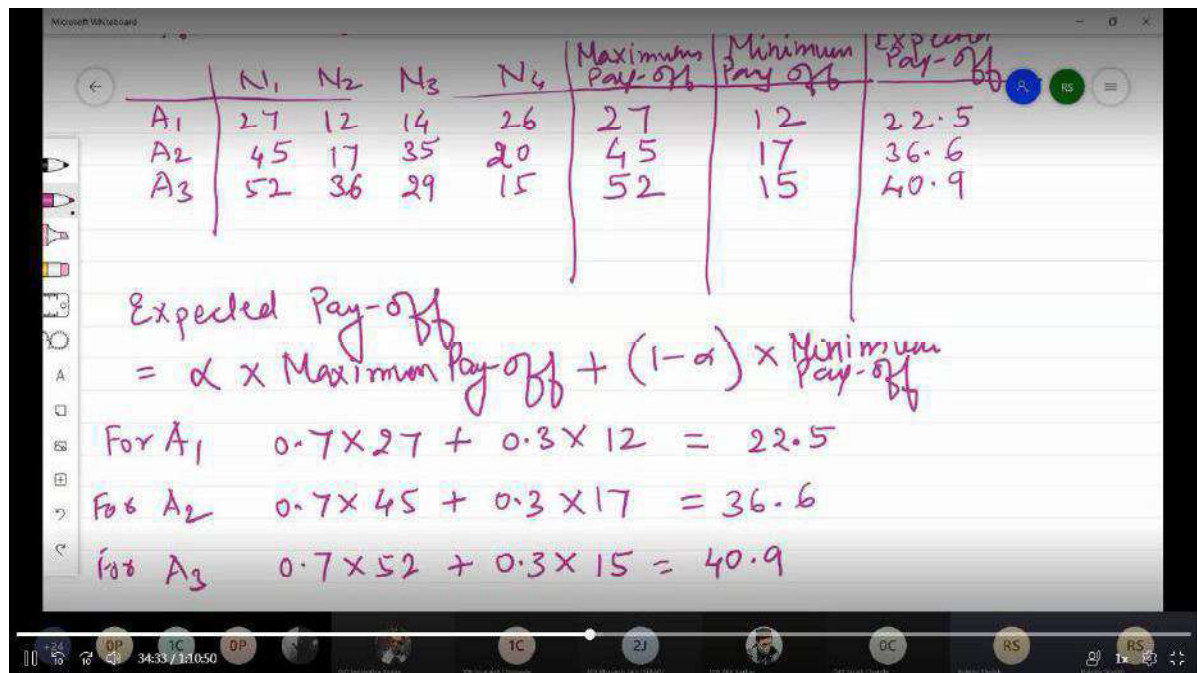 Microsoft Whiteboard
N1 N2 N3 N4 Maximum Pay-off Minimum Pay off Expected Pay-off
RS
A1 27 12 14 26 27 12 22.5
A2 45 17 35 20 45 17 36.6
A3 52 36 29 15 52 15 40.9
Expected Pay-off
= α × Maximum Pay-off + (1-α) × Minimum Pay-off
A
For A1 0.7×27 + 0.3×12 = 22.5
For A2 0.7×45 + 0.3×17 = 36.6
For A3 0.7×52 + 0.3×15 = 40.9
+24 DP 1C DP 1C 2J 0C RS RS
10 10 34:33 / 1:10:50 1x